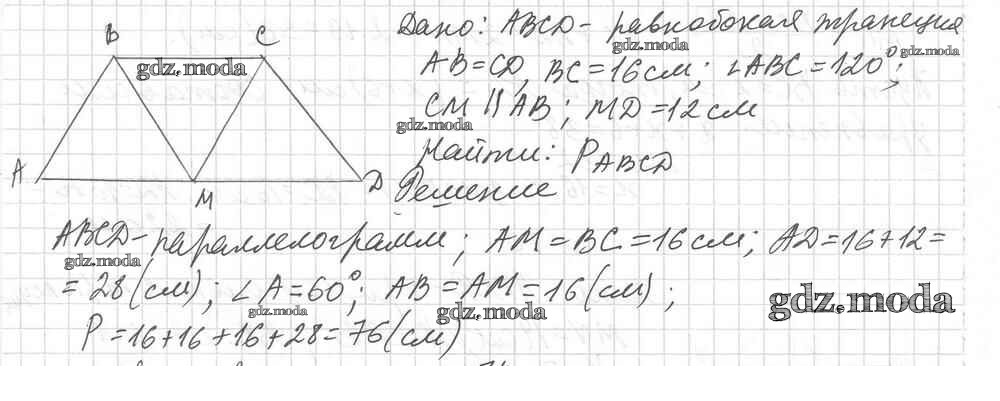 Дано: ABCD - равнобокая трапеция
gdz.moda
AB=CD, BC=16см; ∠ABC=120°;
gdz.moda
gdz.moda
CM ∥ AB; MD=12см
gdz.moda
Найти: P ABCD
Решение
B C
A M D
ABCD - параллелограмм; AM=BC=16см; AD=16+12=
gdz.moda
=28(см); ∠A=60°; AB=AM=16(см);
gdz.moda
gdz.moda
gdz.moda
P=16+16+16+28=76(см)